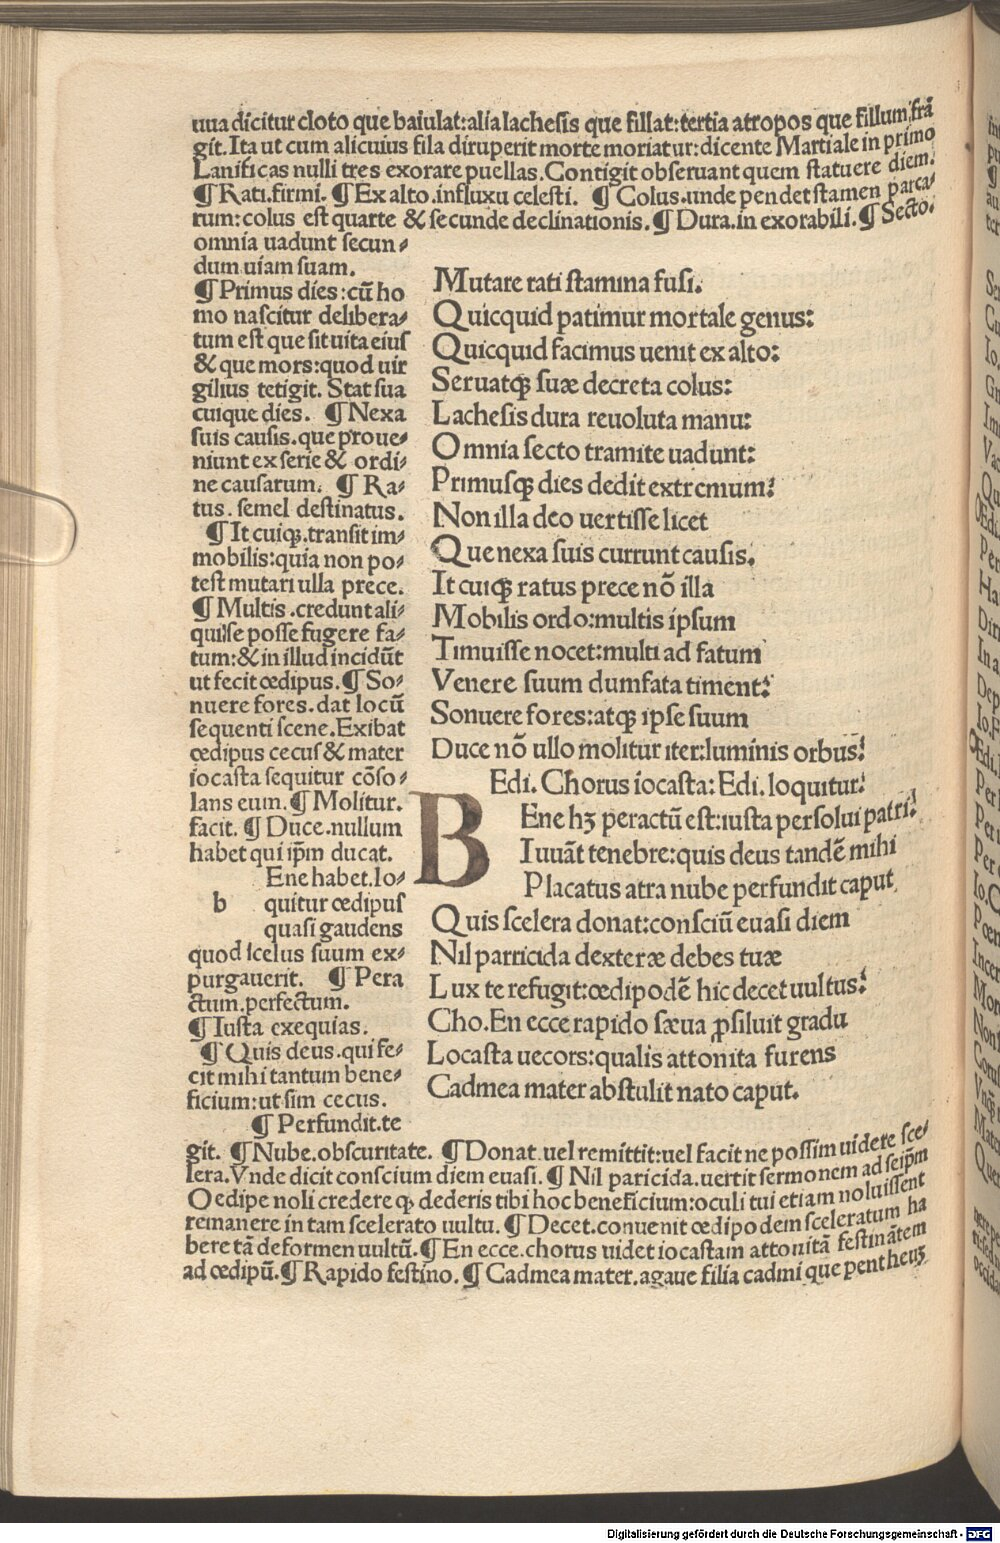 una dicitur cloto que baiulat:alia lachesis que fillat:tertia atropos que fillum frã
git. Ita ut cum alicuius fila diruperit morte moriatur:dicente Martiale in primo
Lanificas nulli tres exorare puellas. Contigit obseruant quem statuere diem.
¶ Rati.firmi. ¶ Ex alto.influxu celesti. ¶ Colus.unde pendet stamen parca⸗
rum:colus est quarte & secunde declinationis. ¶ Dura.in exorabili. ¶ Secto.
omnia uadunt secun⸗
dum uiam suam.
¶ Primus dies:cũ ho
mo nascitur delibera⸗
tum est que sit uita eius
& que mors:quod uir
gilius tetigit. Stat sua
cuique dies. ¶ Nexa
suis causis.que proue⸗
niunt ex serie & ordi⸗
ne causarum. ¶ Ra⸗
tus. semel destinatus.
¶ It cuiqꝫ.transit im⸗
mobilis:quia non po⸗
test mutari ulla prece.
¶ Multis.credunt ali⸗
qui se posse fugere fa⸗
tum:& in illud incidũt
ut fecit œdipus. ¶ So⸗
nuere fores.dat locũ
sequenti scene. Exibat
œdipus cecus & mater
iocasta sequitur cõso⸗
lans eum. ¶ Molitur.
facit. ¶ Duce.nullum
habet qui ip̃m ducat.
Ene habet.lo⸗
b quitur œdipus
quasi gaudens
quod scelus suum ex⸗
purgauerit. ¶ Pera
ctum.perfectum.
¶ Iusta exequias.
¶ Quis deus.qui fe⸗
cit mihi tantum bene⸗
ficium:ut sim cecus.
¶ Perfundit.te
Mutare rati stamina fusi.
Quicquid patimur mortale genus:
Quicquid facimus uenit ex alto:
Seruatqꝫ suæ decreta colus:
Lachesis dura reuoluta manu:
Omnia secto tramite uadunt:
Primusqꝫ dies dedit extremum:
Non illa deo uertisse licet
Que nexa suis currunt causis.
It cuiqꝫ ratus prece nõ illa
Mobilis ordo:multis ipsum
Timuisse nocet:multi ad fatum
Venere suum dum fata timent:
Sonuere fores:atqꝫ ipse suum
Duce nõ ullo molitur iter:luminis orbus:
Edi. Chorus iocasta: Edi. loquitur:
BEne hꝫ peractũ est:iusta persolui patri:
Iuuãt tenebre:quis deus tandẽ mihi
Placatus atra nube perfundit caput
Quis scelera donat:consciũ euasi diem
Nil parricida dexteræ debes tuæ
Lux te refugit:œdipodẽ hic decet uultus:
Cho. En ecce rapido sæua ꝓsiluit gradu
Locasta uecors:qualis attonita furens
Cadmea mater abstulit nato caput.
git. ¶ Nube.obscuritate. ¶ Donat.uel remittit:uel facit ne possim uidere sce⸗
lera. Vnde dicit conscium diem euasi. ¶ Nil paricida.uertit sermonem ad seip̃m
Oedipe noli credere qꝫ dederis tibi hoc beneficium:oculi tui etiam noluissent
remanere in tam scelerato uultu. ¶ Decet.conuenit œdipodem sceleratum ha
bere tã deformen uultũ. ¶ En ecce.chorus uidet iocastam attonitã festinãtem
ad œdipũ. ¶ Rapido festino. ¶ Cadmea mater.agaue filia cadmi que pentheuꝫ
Digitalisierung gefördert durch die Deutsche Forschungsgemeinschaft - DFG